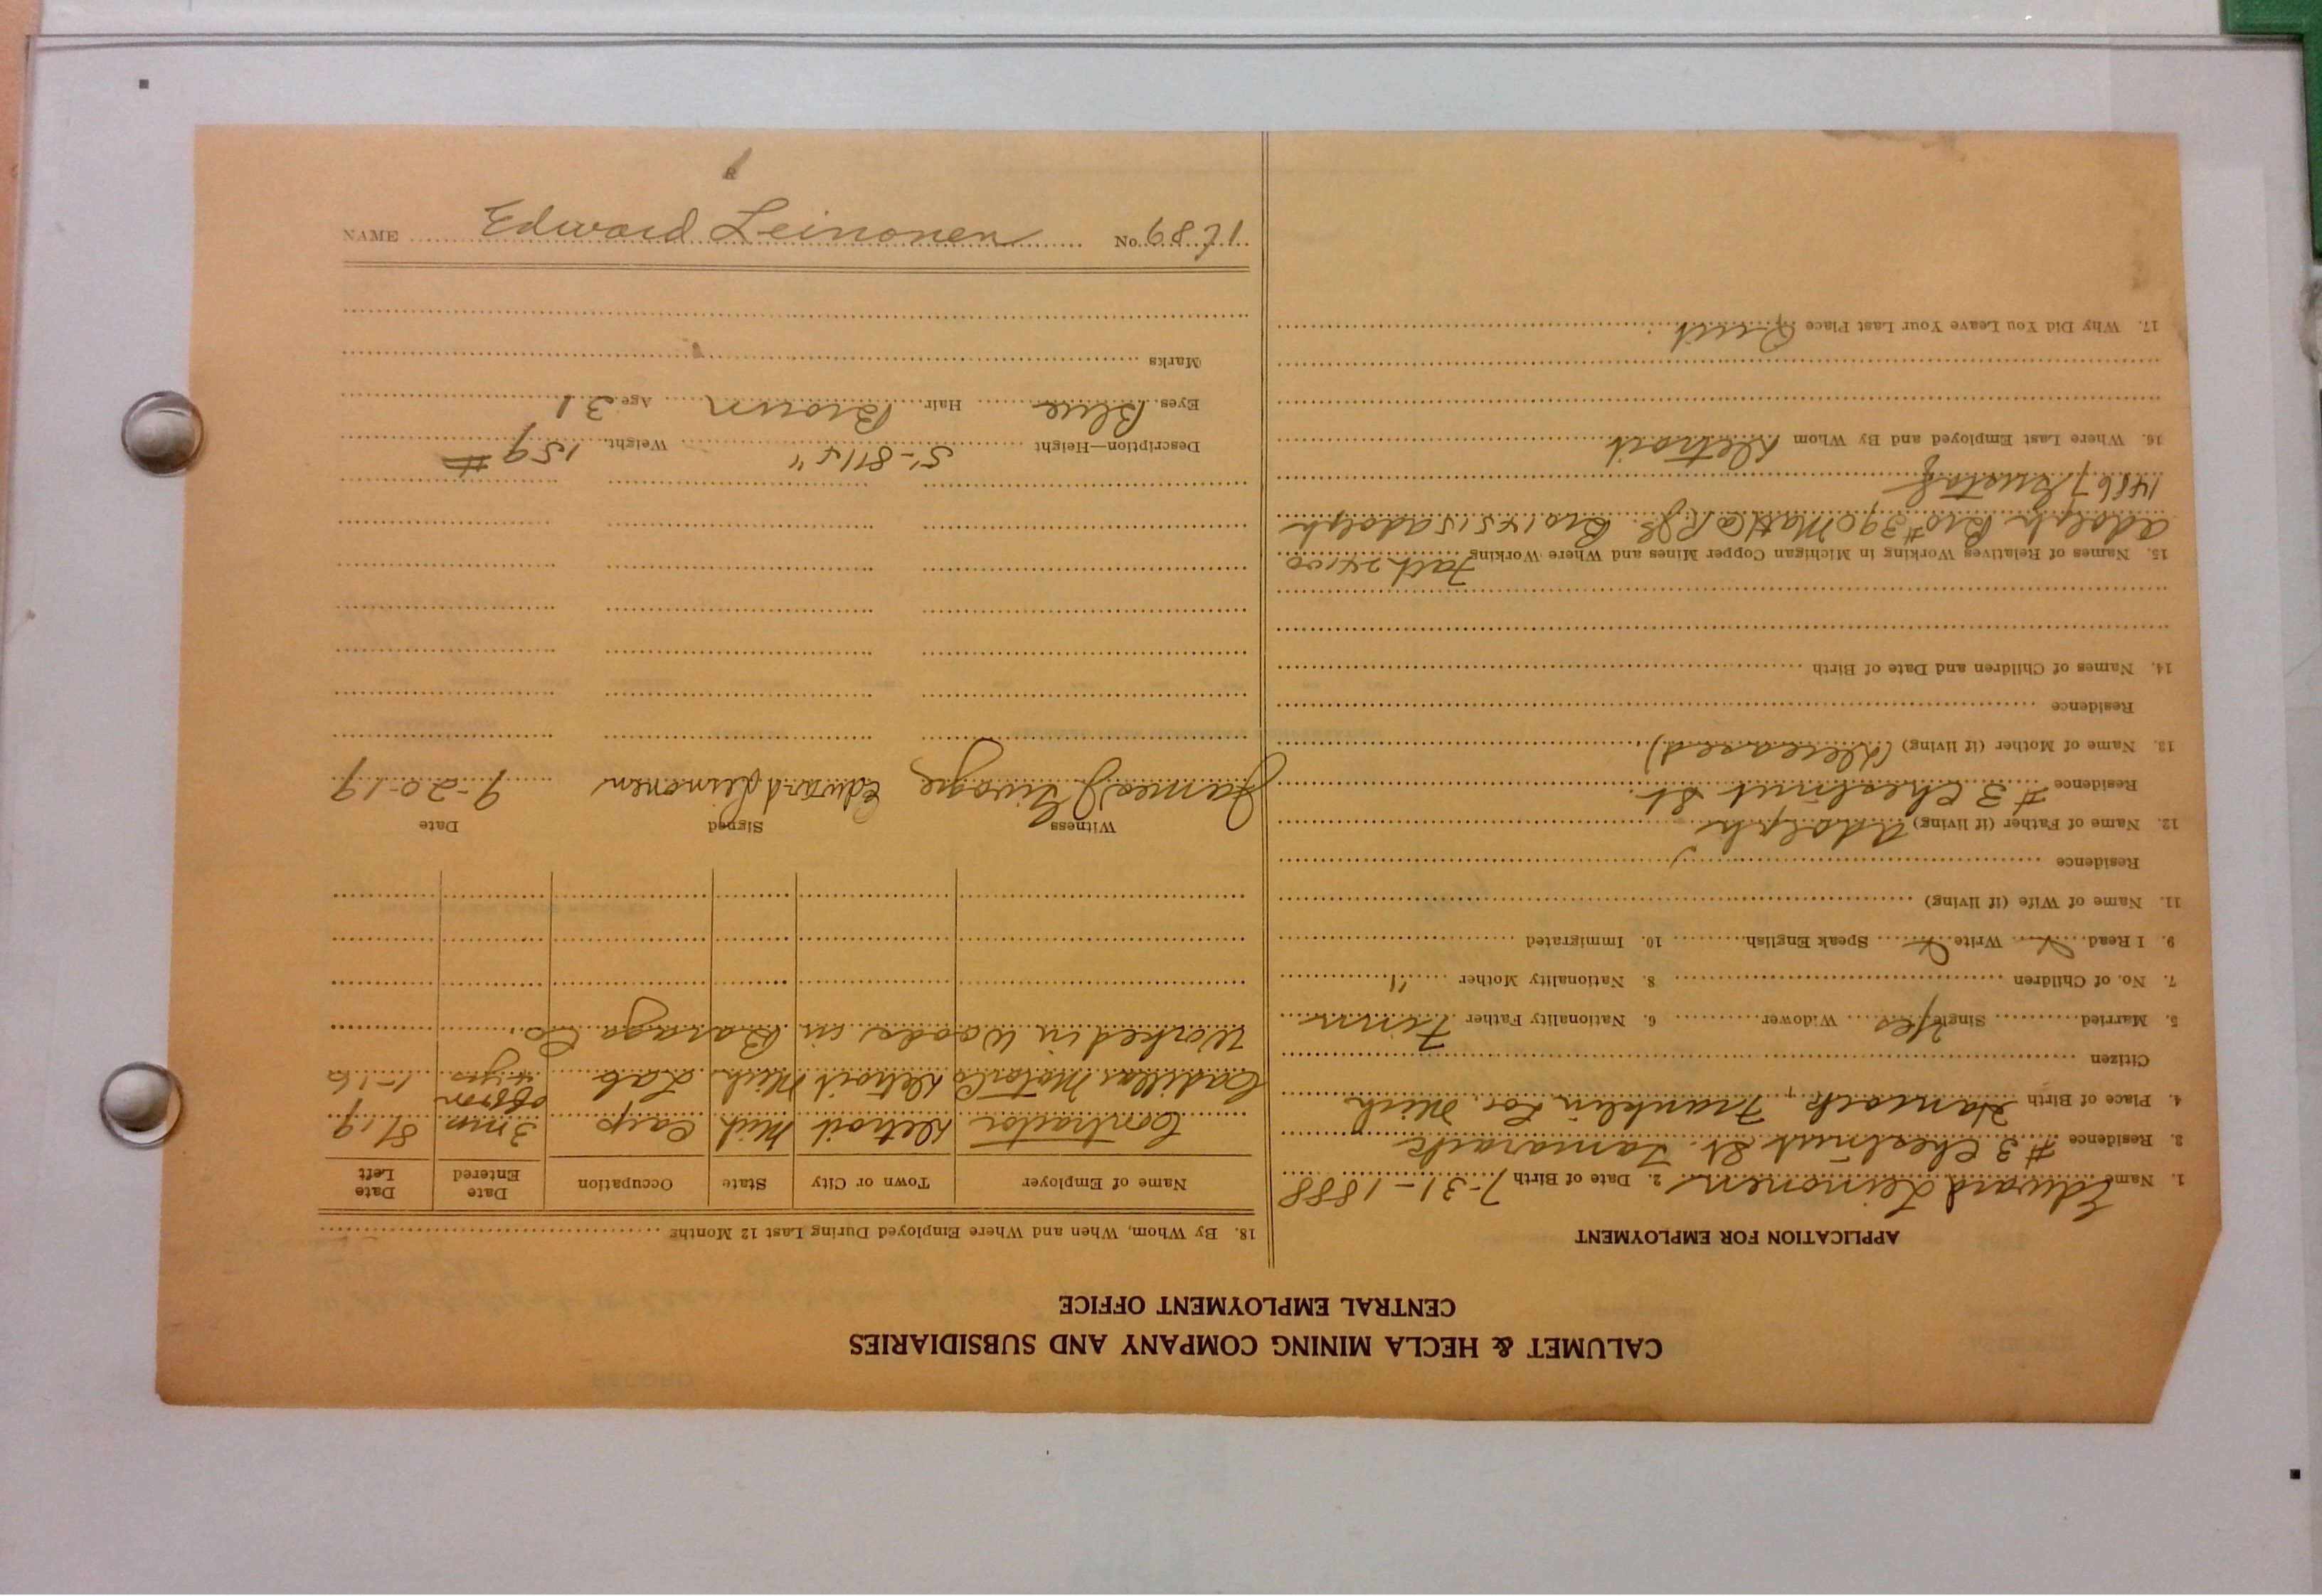 CALUMET & HECLA MINING COMPANY AND SUBSIDIARIES
CENTRAL EMPLOYMENT OFFICE
APPLICATION FOR EMPLOYMENT
1. Name Edward Leinonen 2. Date of Birth 7-31-1888
3. Residence #3 Chestnut St. Tamarack
4. Place of Birth Hancock, Franklin Loc, Mich
Citizen
5. Married Single Yes Widower 6. Nationality Father Finn
7. No. of Children 8. Nationality Mother "
9. I Read Write Speak English 10. Immigrated
11. Name of Wife (if living)
Residence
12. Name of Father (if living) Adolph
Residence #3 Chestnut St.
13. Name of Mother (if living) (Deceased)
Residence
14. Names of Children and Date of Birth
15. Names of Relatives Working in Michigan Copper Mines and Where Working Fath 24100
Adolph Bro #390 Matt @ Bro 14515 Adolph
14867 Gustaf
16. Where Last Employed and By Whom Detroit
17. Why Did You Leave Your Last Place Quit
18. By Whom, When and Where Employed During Last 12 Months
Name of Employer Town or City State Occupation Date Entered Date Left
Contractor Detroit Mich Carp 3 mo 8/19
Cadillac Motor Co Detroit Mich Lab off & on 4 yrs 1-16
Worked in Woods in Baraga Co.
Witness Signed Date
James J Edward Leinonen 9-20-19
Description—Height 5'-8 1/4" Weight 159#
Eyes Blue Hair Brown Age 31
Marks
NAME Edward Leinonen No. 6871
R